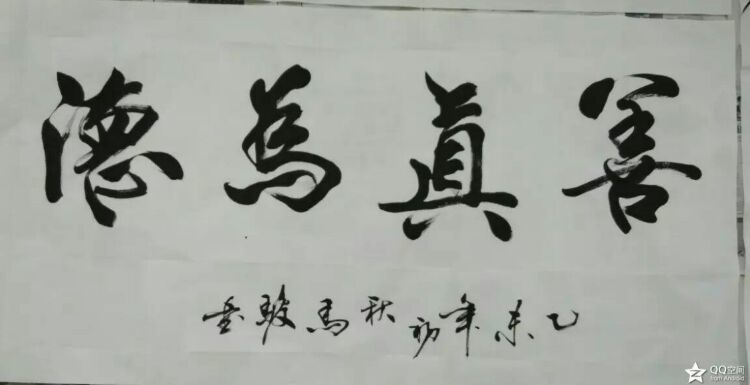 善真為德
乙未年初秋馬駿書
QQ空间
from Android